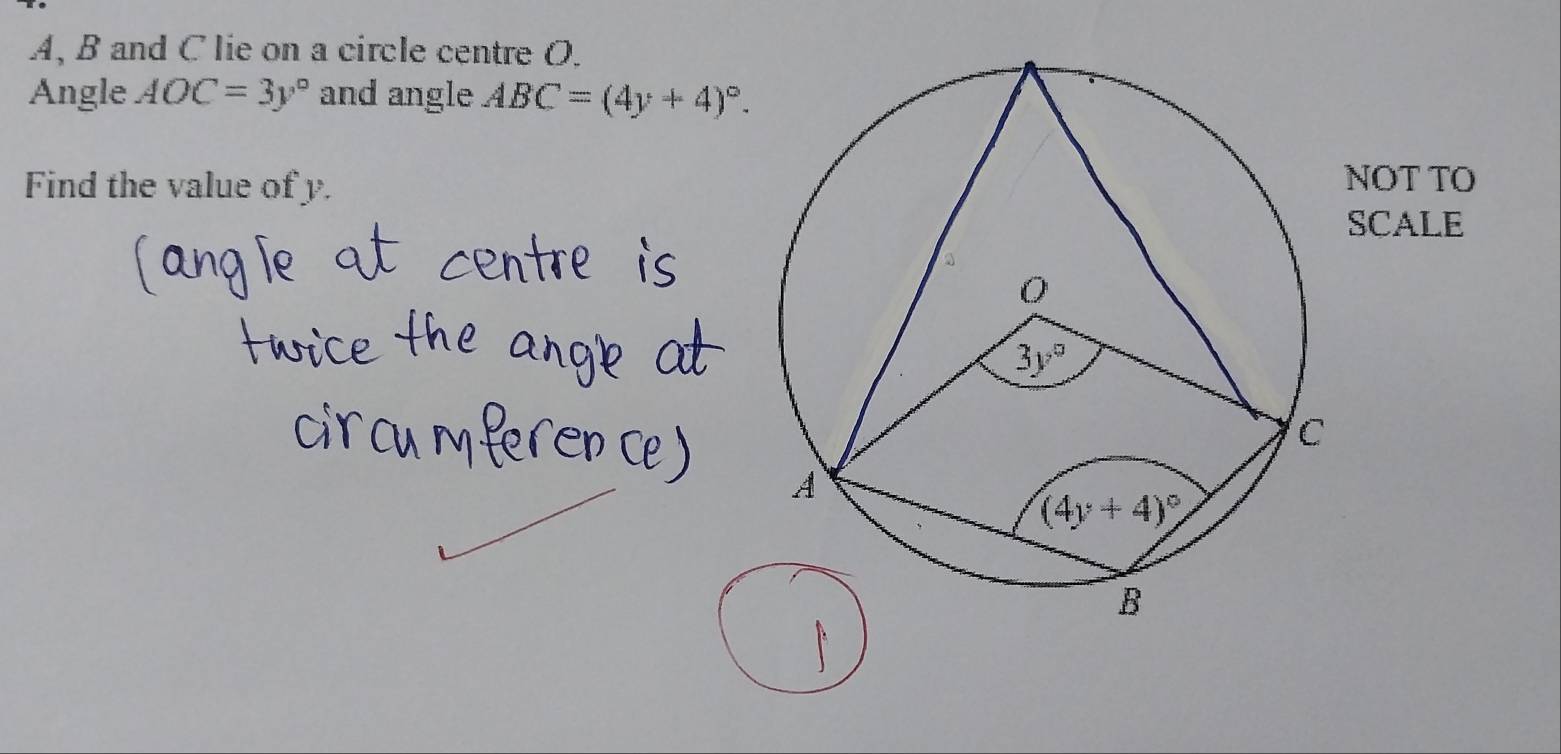 A, B and C lie on a circle centre O.
Angle AOC = 3y° and angle ABC = (4y + 4)°.
Find the value of y.
(angle at centre is
twice the angle at
circumference)
NOT TO
SCALE
O
3y°
C
A
(4y + 4)°
B
1